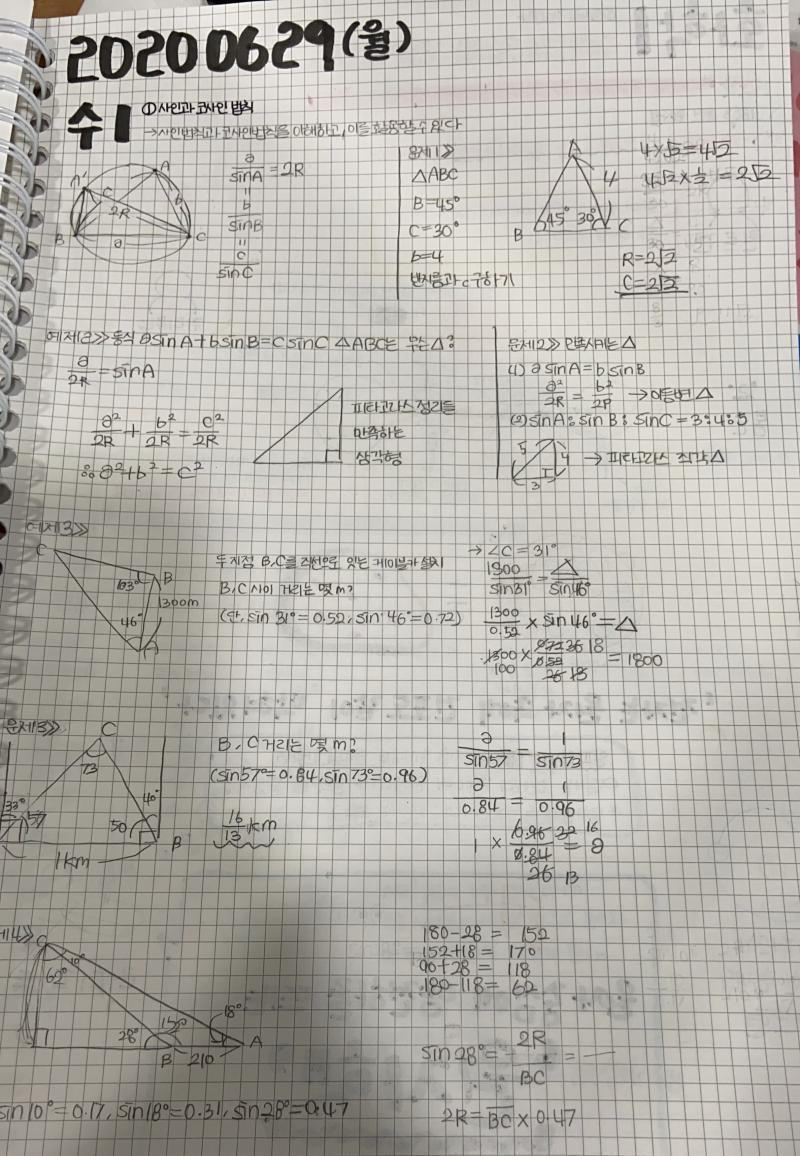 20200629(월)
수1
① 사인과 코사인 법칙
→사인법칙과 코사인법칙을 이해하고, 이를 활용할 수 있다
A' A
C b
2R
B a C
a/sinA = 2R
=
b/sinB
=
c/sinC
문제1≫
△ABC
B=45°
C=30°
b=4
반지름과 c 구하기
A
4
45° 30°
B C
4×√2=4√2
4√2×1/2=2√2
R=2√2
C=2√2
예제2≫ 등식 asinA+bsinB=CsinC △ABC는 무슨△?
a/2R=sinA
a²/2R+b²/2R=c²/2R
∴a²+b²=c²
피타고라스 정리를
만족하는
삼각형
문제2≫ 만족시키는△
(1) asinA=bsinB
a²/2R=b²/2R →이등변△
(2) sinA:sinB:sinC=3:4:5
5 4
3
→ 피타고라스 직각△
예제3≫
C
63° B
1300m
46°
A
두 지점 B,C를 직선으로 잇는 케이블카 설치
B,C사이 거리는 몇 m?
(단, sin 31°=0.52, sin 46°=0.72)
→∠C=31°
1300/sin31°=△/sin46°
1300/0.52×sin46°=△
1300×0.72 36 18/0.52 26 13=1800
100
문제3≫
C
73
40°
33° 57 50
B
1km
B,C 거리는 몇 m?
(sin57°=0.84, sin73°=0.96)
16/13km
a/sin57=1/sin73
a/0.84=1/0.96
1×0.96 32 16/0.84 26 13=a
제4≫
C
62° 10°
28° 152° 18°
B 210 A
180-28= 152
152+18= 170
90+28= 118
180-118= 62
sin28°=2R/BC=—
sin10°=0.17, sin18°=0.31, sin28°=0.47
2R=BC×0.47